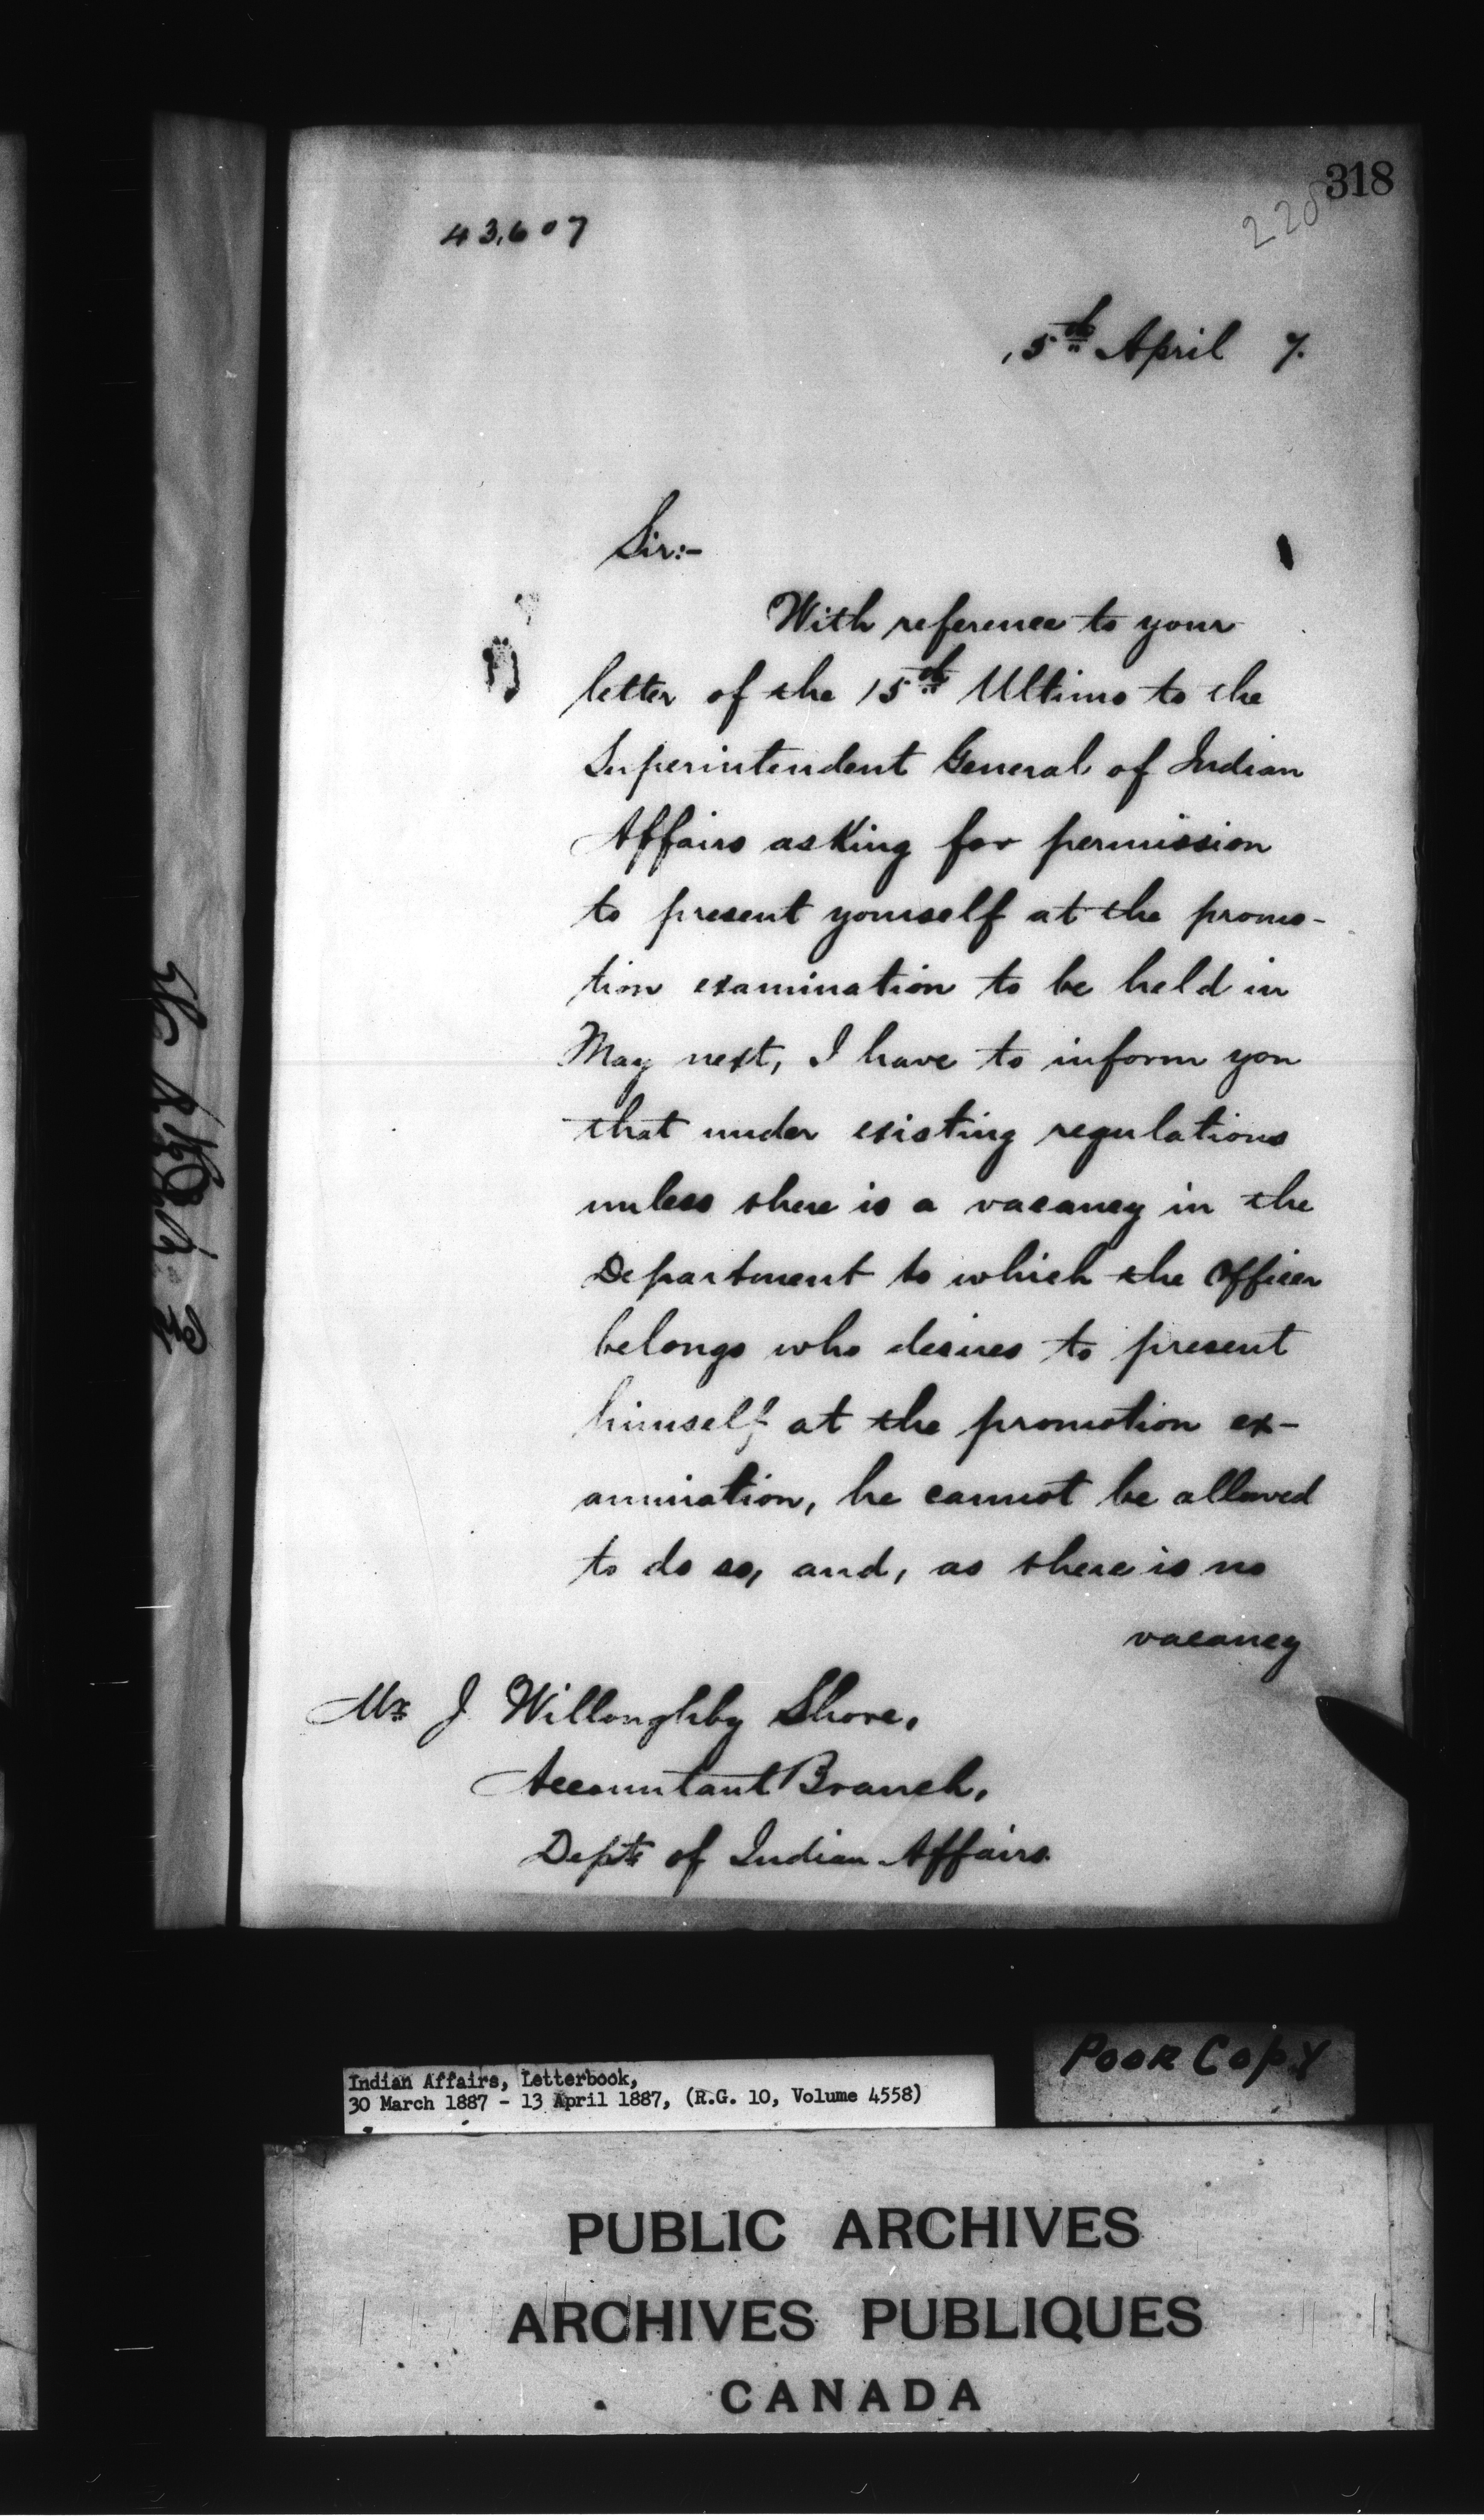 318
220
43,607
5th April 7.
Sir:-
With reference to your
letter of the 15th Ultimo to the
Superintendent General of Indian
Affairs asking for permission
to present yourself at the promo-
tion examination to be held in
May next, I have to inform you
that under existing regulations
unless there is a vacancy in the
Department to which the Officer
belongs who desires to present
himself at the promotion ex-
amination, he cannot be allowed
to do so, and, as there is no
vacancy
Mr J Willoughby Shore,
Accountant Branch,
Dept of Indian Affairs.
Poor Copy
Indian Affairs, Letterbook,
30 March 1887 - 13 April 1887, (R.G. 10, Volume 4558)
PUBLIC ARCHIVES
ARCHIVES PUBLIQUES
CANADA